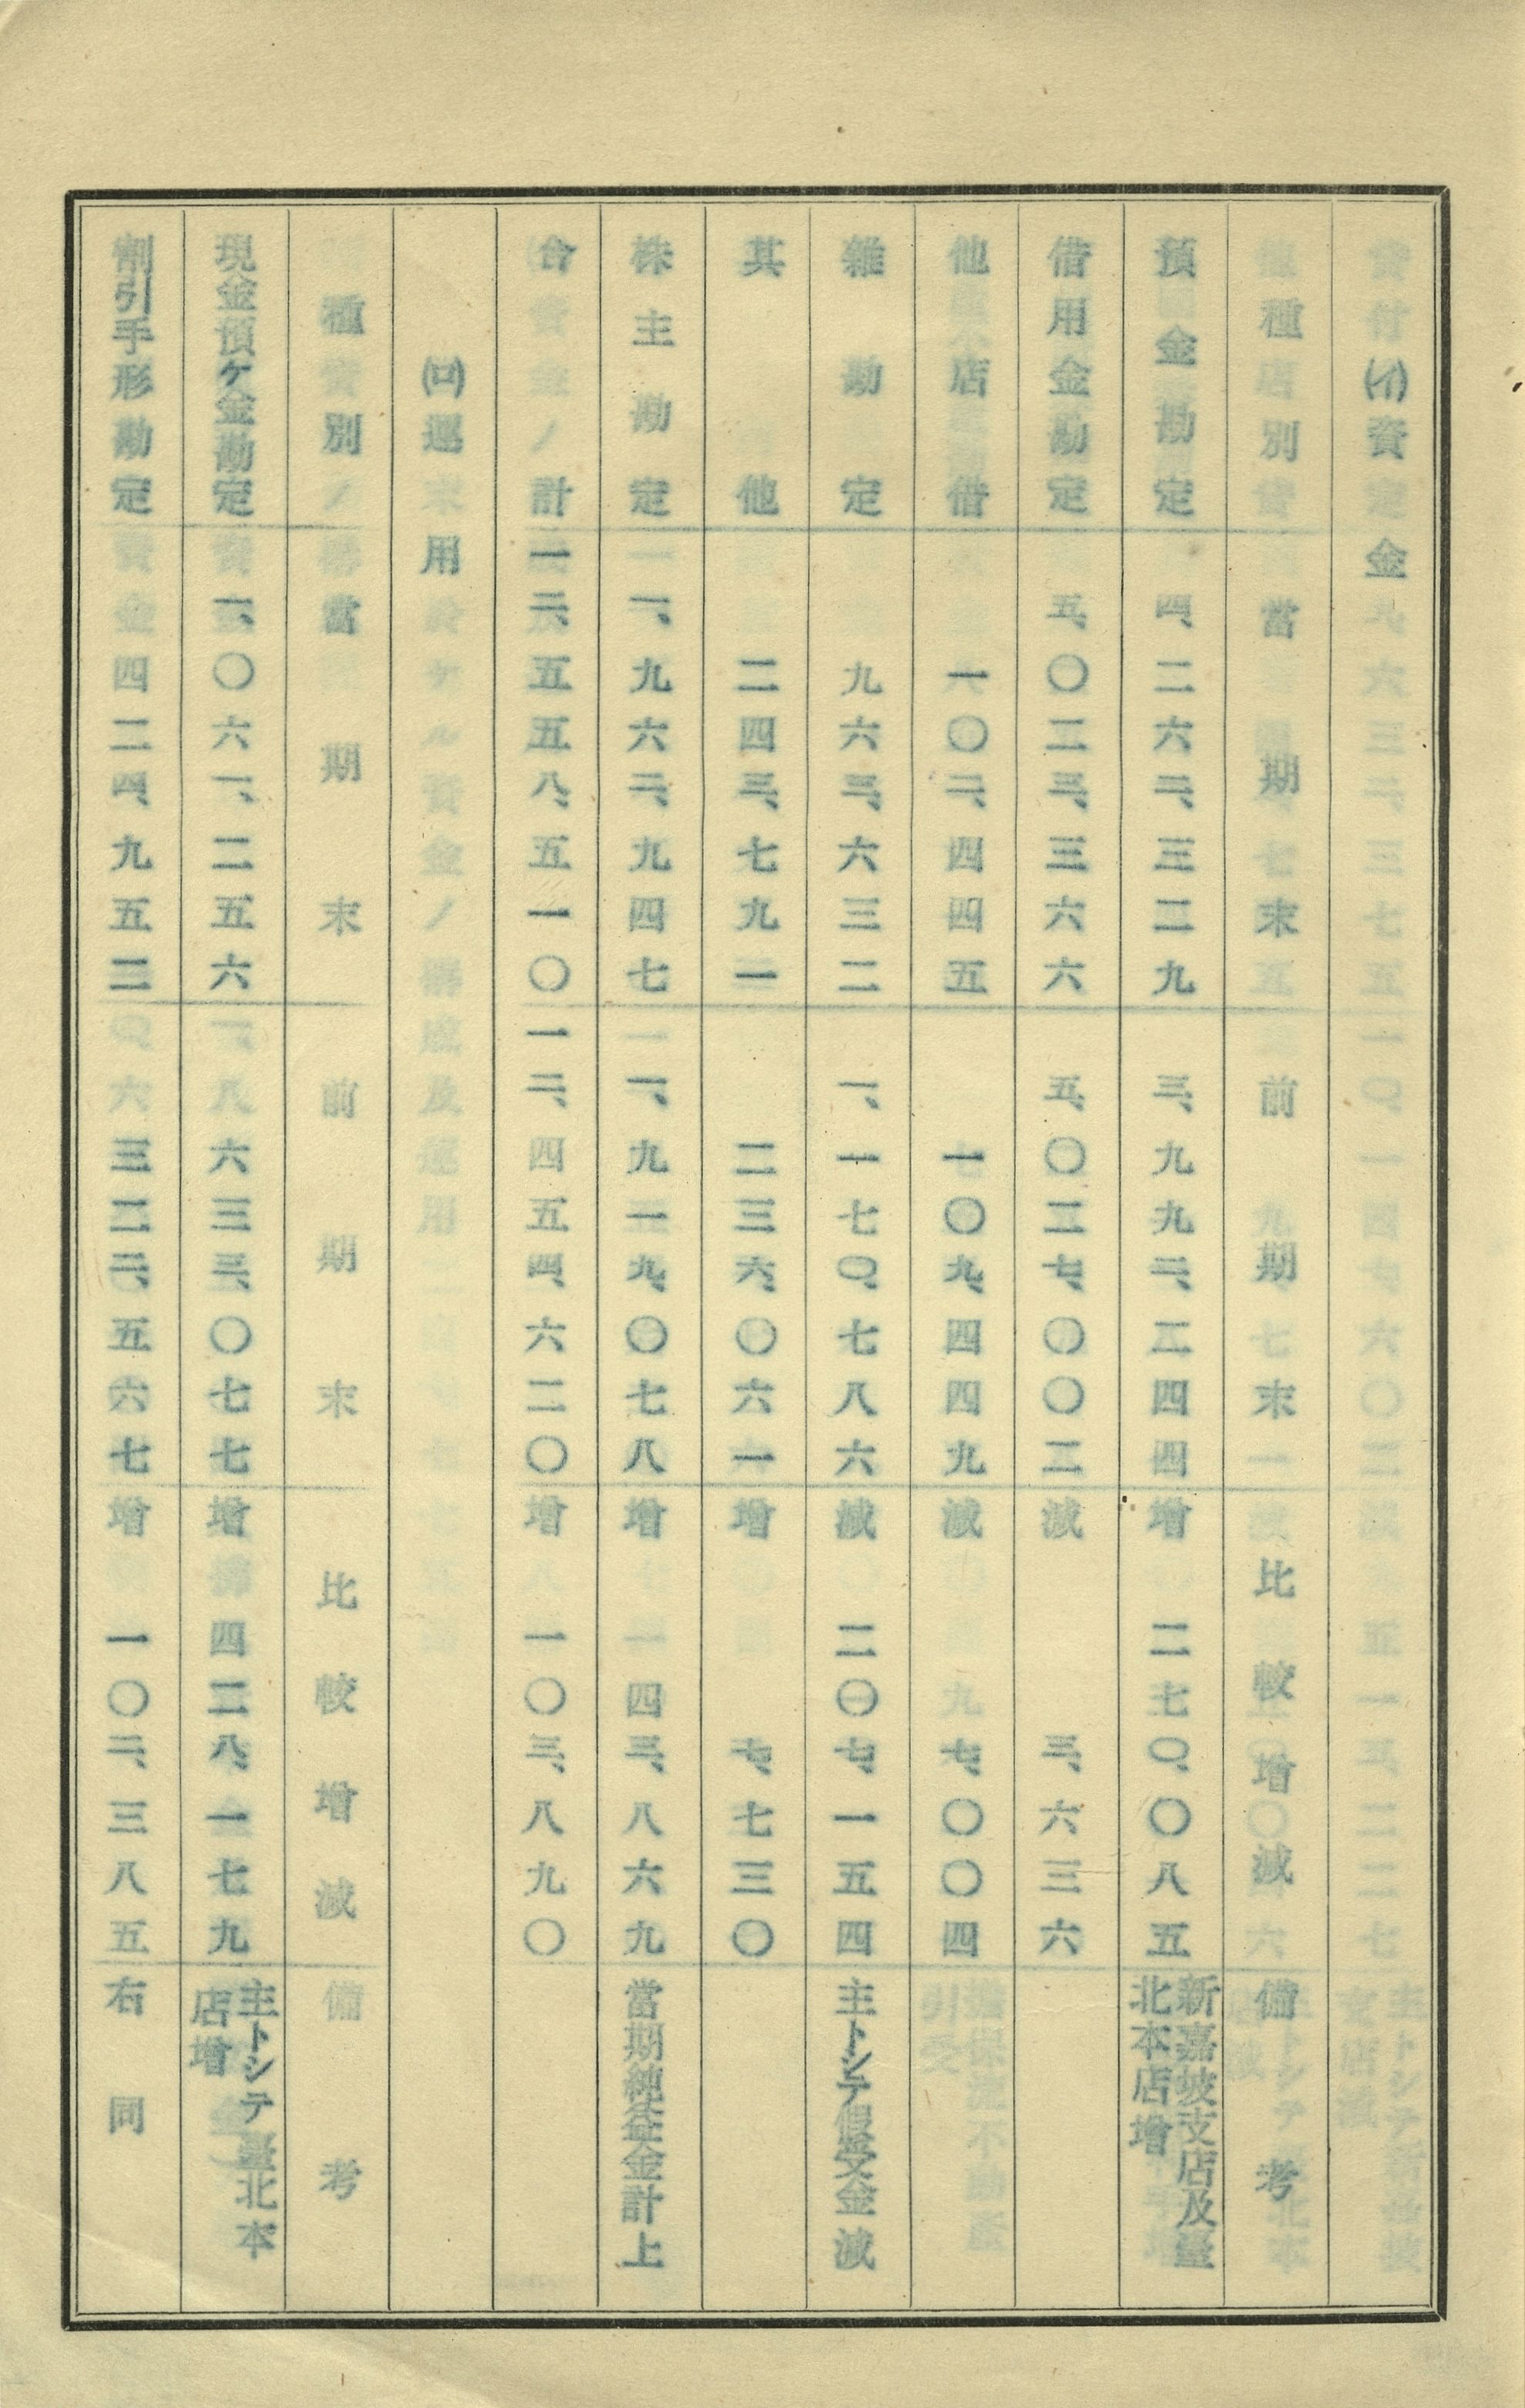 (イ)資金
種別 當期末 前期末 比較增減 備考
預金勘定 四、二六二、三二九 三、九九二、二四四 增 二七〇、〇八五 新嘉坡支店及臺
北本店增
借用金勘定 五、〇二三、三六六 五、〇二七、〇〇二 減 三、六三六
他店借 一〇二、四四五 一〇九、四四九 減 七、〇〇四
雜勘定 九六三、六三二 一、一七〇、七八六 減 二〇七、一五四 主トシテ假受金減
其他 二四三、七九一 二三六、〇六一 增 七、七三〇
株主勘定 一、九六二、九四七 一、九一九、〇七八 增 四三、八六九 當期純益金計上
合計 一二、五五八、五一〇 一二、四五四、六二〇 增 一〇三、八九〇
(ロ)運用
種別 當期末 前期末 比較增減 備考
現金預ケ金勘定 一、〇六一、二五六 六三三、〇七七 增 四二八、一七九 主トシテ臺北本
店增
割引手形勘定 四二四、九五二 三二二、五六七 增 一〇二、三八五 右同